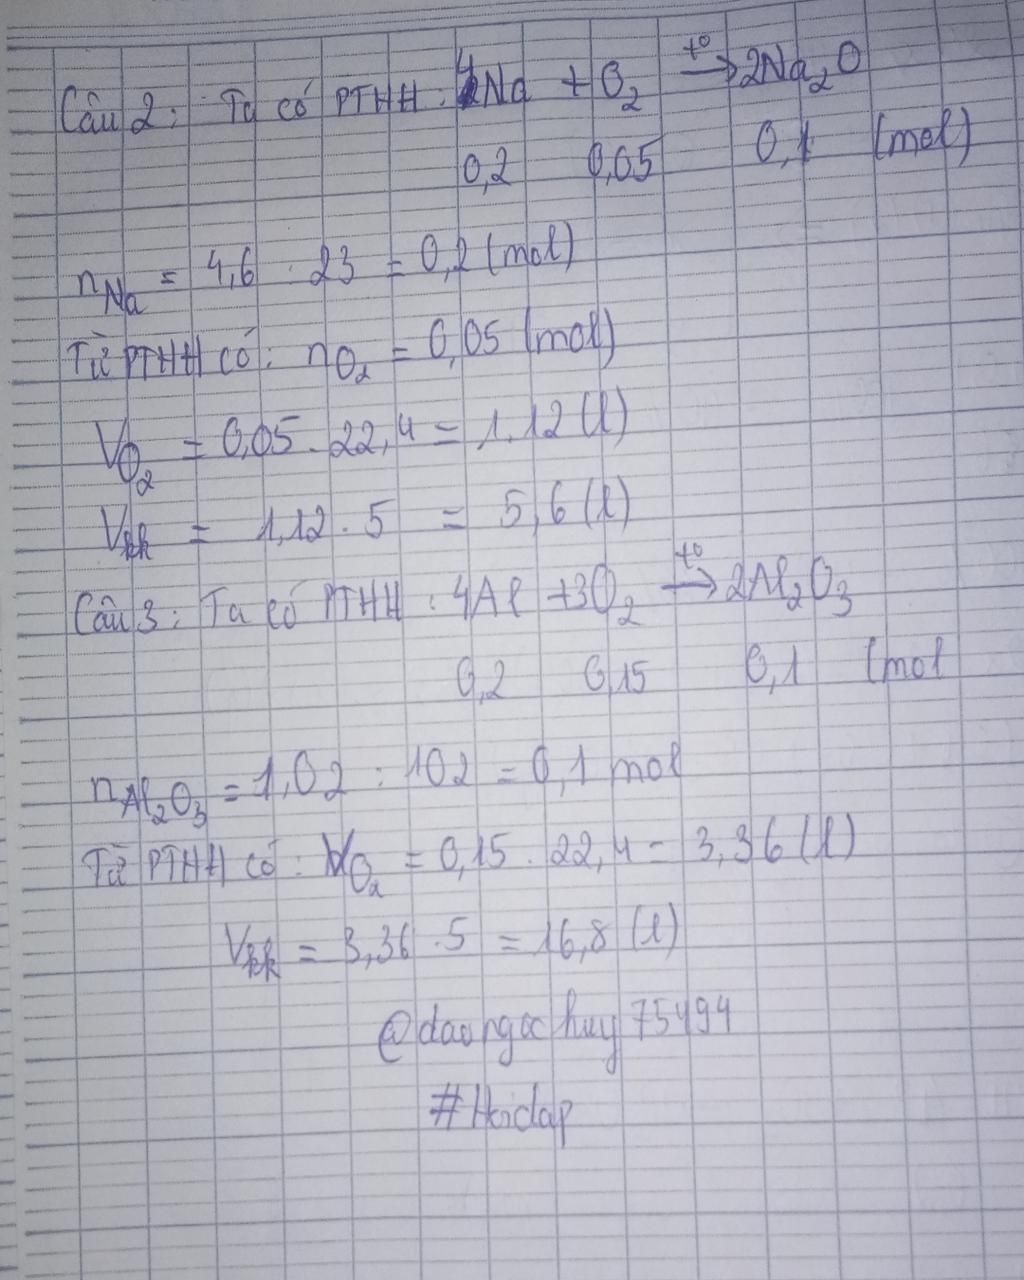 Câu 2: Ta có PTHH: 4Na + O₂ t° → 2Na₂O
0,2 0,05 0,1 (mol)
nNa = 4,6 : 23 = 0,2 (mol)
Từ PTHH có: nO₂ = 0,05 (mol)
VO₂ = 0,05 . 22,4 = 1.12 (l)
Vkk = 1,12 . 5 = 5,6 (l)
Câu 3: Ta có PTHH: 4Al + 3O₂ t° → 2Al₂O₃
0,2 0,15 0,1 (mol
nAl₂O₃ = 1,02 : 102 = 0,1 mol
Từ PTHH có: VO₂ = 0,15 . 22,4 = 3,36 (l)
Vkk = 3,36 . 5 = 16,8 (l)
@daongochuy75494
#Hoidap